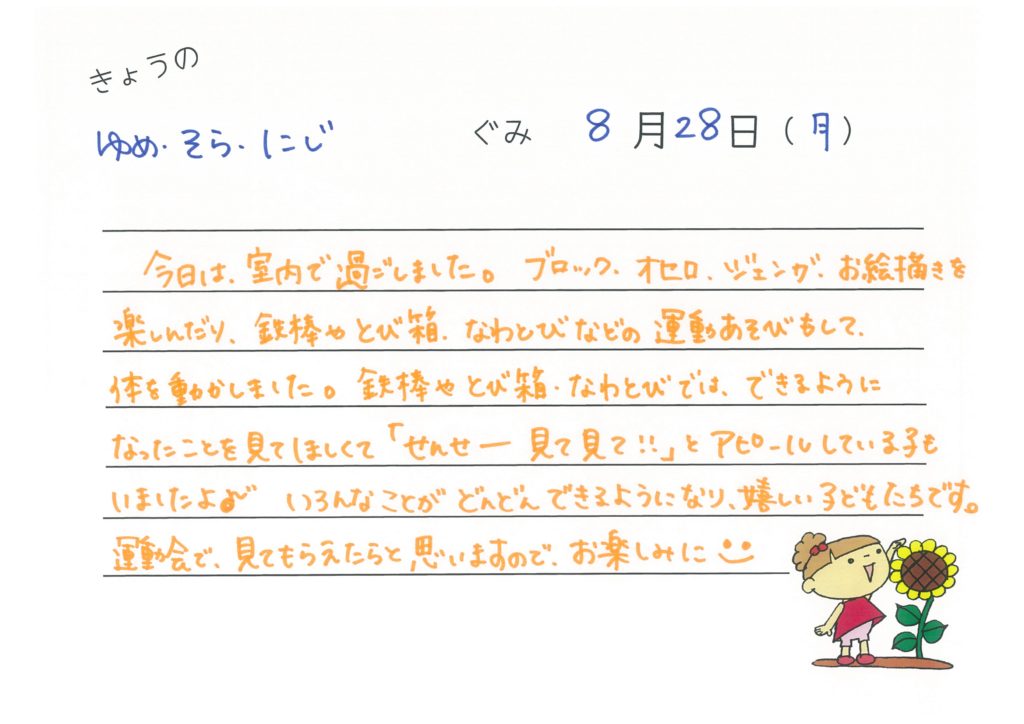 きょうの
ゆめ・そら・にじ ぐみ 8月28日(月)
今日は、室内で過ごしました。ブロック、オセロ、ジェンガ、お絵描きを
楽しんだり、鉄棒やとび箱、なわとびなどの運動あそびもして、
体を動かしました。鉄棒やとび箱、なわとびでは、できるように
なったことを見てほしくて「せんせー見て見て!!」とアピールしている子も
いましたよ♪ いろんなことがどんどんできるようになり、嬉しい子どもたちです。
運動会で、見てもらえたらと思いますので、お楽しみに